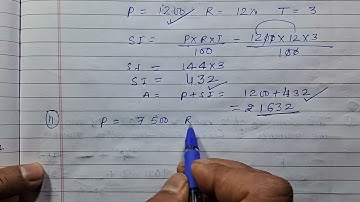 P = 1200 R = 12% T = 3
SI = P×R×T/100 = 1200×12×3/100
SI = 144×3
SI = 432
A = P+SI = 1200+432
= ₹1632
(ii) P = 7500 R